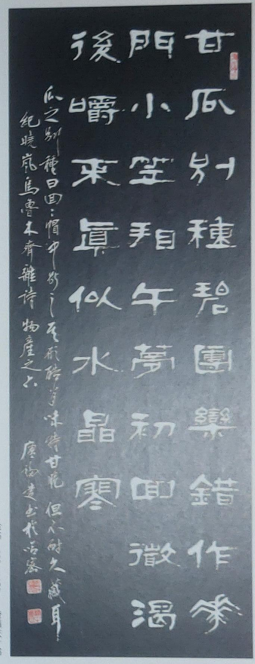 甘瓜別種碧團欒錯作花
門小笠看午夢初回微渴
後嚼來眞似水晶寒
瓜之別種曰回〻帽中斷之其形酷肖味特甘脆但不耐久藏耳
紀曉嵐烏魯木齊雜詩物產之六
建書於